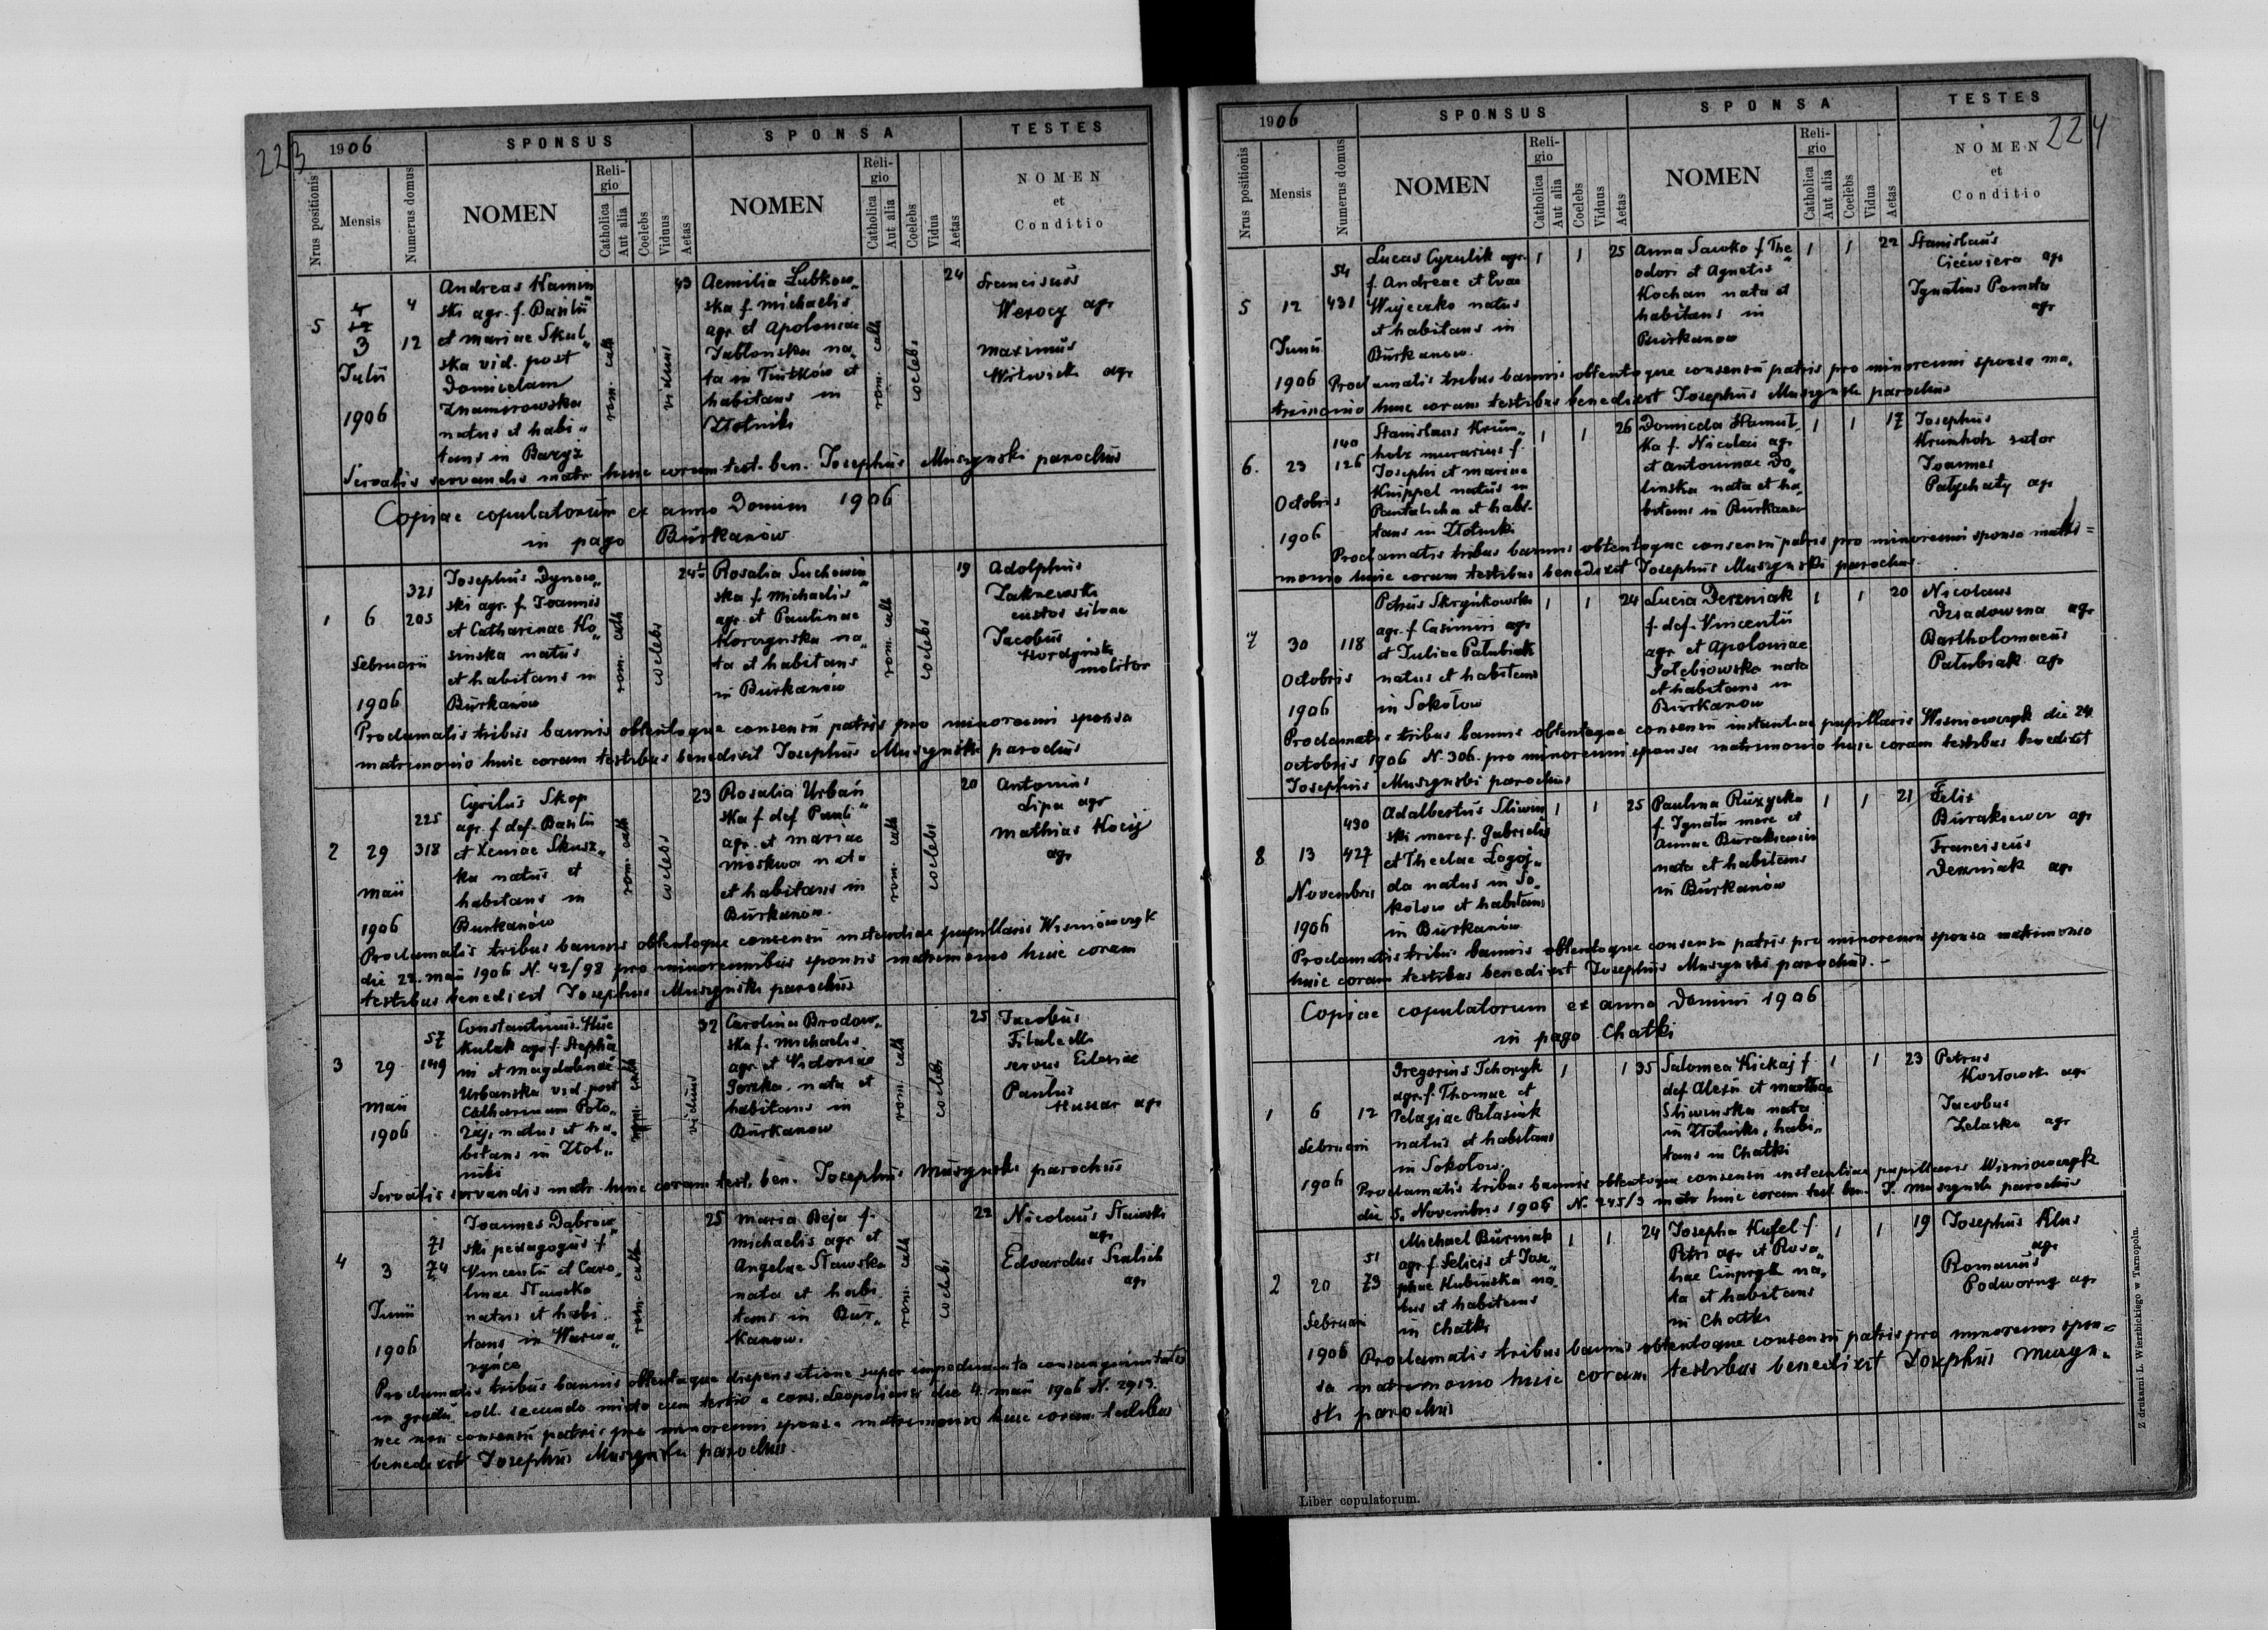 223
1906
SPONSUS
SPONSA
TESTES
Nrus positionis
Mensis
Numerus domus
NOMEN
Reli-
gio
Catholica
Aut alia
Coelebs
Viduus
Aetas
NOMEN
Reli-
gio
Catholica
Aut alia
Coelebs
Vidua
Aetas
NOMEN
et
Conditio
5
3
Julii
1906
4
12
Andreas Kamin
ski agr. f. Basilii
et Mariae Skul„
ska vid. post
Domicelam
Znamirowska
natus et habi„
tans in Barysz
rom. cath
viduus
43
Aemilia Lubkow„
ska f. Michaelis
agr. et Apoloniae
Jablonska na„
ta in et
habitans in
Złotniki
rom. cath
coelebs
24
Franciscus
Werocy agr
Maximus
Witwicki agr
Servatis servandis matr. huic coram test. ben. Josephus Muszynski parochus
Copiae copulatorum ex anno Domini 1906
in pago Burkanów
1
6
Februarii
1906
321
205
Josephus Dynow„
ski agr. f. Joannis
et Catharinae Ko„
sinska natus
et habitans in
Burkanów
rom. cath
coelebs
24½
Rosalia Suchowin„
ska f. Michaelis
agr. et Paulinae
Korczynska na„
ta et habitans
in Burkanów
rom. cath
coelebs
19
Adolphus
Zakrzewski
custos silvae
Jacobus
Hordynski
molitor
Proclamatis tribus bannis obtentoque consensu patris pro minorenni sponsa
matrimonio huic coram testibus benedixit Josephus Muszynski parochus
2
29
Maii
1906
225
318
Cyrilus Skop
agr. f. def. Basilii
et Xeniae Skusz„
ka natus et
habitans in
Burkanów
rom. cath
coelebs
23
Rosalia Urbań„
ska f. def Pauli
agr. et Mariae
Moskwa nata
et habitans in
Burkanów.
rom. cath
coelebs
20
Antonius
Lipa agr
Mathias Kocij
agr
Proclamatis tribus bannis obtentoque consensu instantiae pupillaris Wisniowczyk
die 22. Maii 1906 N. 42/98 pro minorennibus sponsis matrimonio huic coram
testibus benedixit Josephus Muszynski parochus
3
29
Maii
1906
57
149
Constantinus Huc
kulak agr. f. Stepha
ni et Magdalenae
Urbanska vid. post
Catharinam Poło„
zaj, natus et ha„
bitans in Złot„
niki
rom. cath
viduus
32
Carolina Brodow„
ska f. Michaelis
agr. et Victoriae
Gorzka nata et
habitans in
Burkanow
rom. cath
coelebs
25
Jacobus
servus
Paulus
Hussar agr
Servatis servandis matr. huic coram test. ben. Josephus Muszynski parochus
4
3
Junii
1906
71
74
Joannes Dąbrow„
ski pedagogus f.
Vincentii et Caro„
linae Stawska
natus et habi„
tans in Warwa„
rynce
rom. cath
25
Maria Beja f.
Michaelis agr. et
Angelae Stawska
nata et habi„
tans in Bur„
kanow.
rom. cath
coelebs
22
Nicolaus Stawski
agr
Edvardus Szalich
agr
Proclamatis tribus bannis obtentaque dispensatione super impedimento consanguinitatis
in gradu coll. secundo mixto cum tertio a cons. Leopoliensi die 4. Maii 1906 N. 2913.
nec non consensu patris pro minorenni sponsa matrimonio huic coram testibus
benedixit Josephus Muszynski parochus
224
1906
SPONSUS
SPONSA
TESTES
Nrus positionis
Mensis
Numerus domus
NOMEN
Reli-
gio
Catholica
Aut alia
Coelebs
Viduus
Aetas
NOMEN
Reli-
gio
Catholica
Aut alia
Coelebs
Vidua
Aetas
NOMEN
et
Conditio
5
12
Junii
1906
54
431
Lucas Cyrulik agr.
f. Andreae et Evae
Wujeczko natus
et habitans in
Burkanow.
1
1
25
Anna Sawko f. The„
odori et Agnetis
Kochan nata et
habitans in
Burkanow
1
1
22
Stanislaus
Cicéwiera agr
Ignatius Pometa
agr
Proclamatis tribus bannis obtentoque consensu patris pro minorenni sponsa ma„
trimonio huic coram testibus benedixit Josephus Muszynski parochus
6.
23
Octobris
1906
140
126
Stanislaus Krum„
holz murarius f.
Josephi et Mariae
Knippel natus in
Pantalicha et habi„
tans in Złotniki
1
1
26
Domicela Hamul„
ka f. Nicolai agr
et Antoninae Do„
linska nata et ha„
bitans in Burkanow
1
1
17
Josephus
Krumholz sutor
Joannes
Patychaty agr
Proclamatis tribus bannis obtentoque consensu patris pro minorenni sponsa matri=
monio huic coram testibus benedixit Josephus Muszynski parochus.
7
30
Octobris
1906
118
Petrus Skrynkowski
agr. f. Casimiri agr
et Juliae Patubiak
natus et habitans
in Sokołow
1
1
24
Lucia Derzniak
f. def. Vincentii
agr et Apoloniae
Gołebiowska nata
et habitans in
Burkanow
1
1
20
Nicolaus
Dziadowina agr
Bartholomaeus
Patubiak agr
Proclamatis tribus bannis obtentoque consensu instantiae pupillaris Wisniowczyk die 24.
octobris 1906 N. 306. pro minorenni sponsa matrimonio huic coram testibus benedixit
Josephus Muszynski parochus
8
13
Novembris
1906
490
427
Adalbertus Sliwin
ski merc f. Gabrielis
et Theclae Łogoj„
da natus in So„
kołow et habitans
in Burkanów
1
1
25
Paulina Ruzycka
f. Ignatii merc et
Annae Burakiewicz
nata et habitans
in Burkanów
1
1
21
Felix
Burakiewicz agr
Franciscus
Derzniak agr
Proclamatis tribus bannis obtentoque consensu patris pro minorenni sponsa matrimonio
huic coram testibus benedixit Josephus Muszynski parochus. -
Copiae copulatorum ex anno Domini 1906
in pago Chatki
1
6
Februarii
1906
12
Gregorius Tchoryk
agr. f. Thomae et
Pelagiae Patasiuk
natus et habitans
in Sokołow.
1
1
35
Salomea Kickaj f.
def Alexii et Marthae
Sliwinska nata
in Złotniki, habi„
tans in Chatki
1
1
23
Petrus
Kozłowski agr
Jacobus
Zelasko agr
Proclamatis tribus bannis obtentoque consensu instantiae pupillaris Wisniowczyk
die 5. Novembris 1906 N. 245/3 matr huic coram test. ben. J. Muszynski parochus
2
20
Februarii
1906
51
73
Michael Burniak
agr. f. Felicis et Jose„
phae Kubinska na„
tus et habitans
in Chatki
1
1
24
Josepha Kufel f.
Petri agr et Rosa„
liae Ciupryk na„
ta et habitans
in Chatki
1
1
19
Josephus Klus
agr
Romanus
Podworny agr
Proclamatis tribus bannis obtentoque consensu patris pro minorenni spon=
sa matrimonio huic coram testibus benedixit Josephus Muszyn„
ski parochus
Liber copulatorum.
Z drukarni L. Wierzbickiego w Tarnopolu.